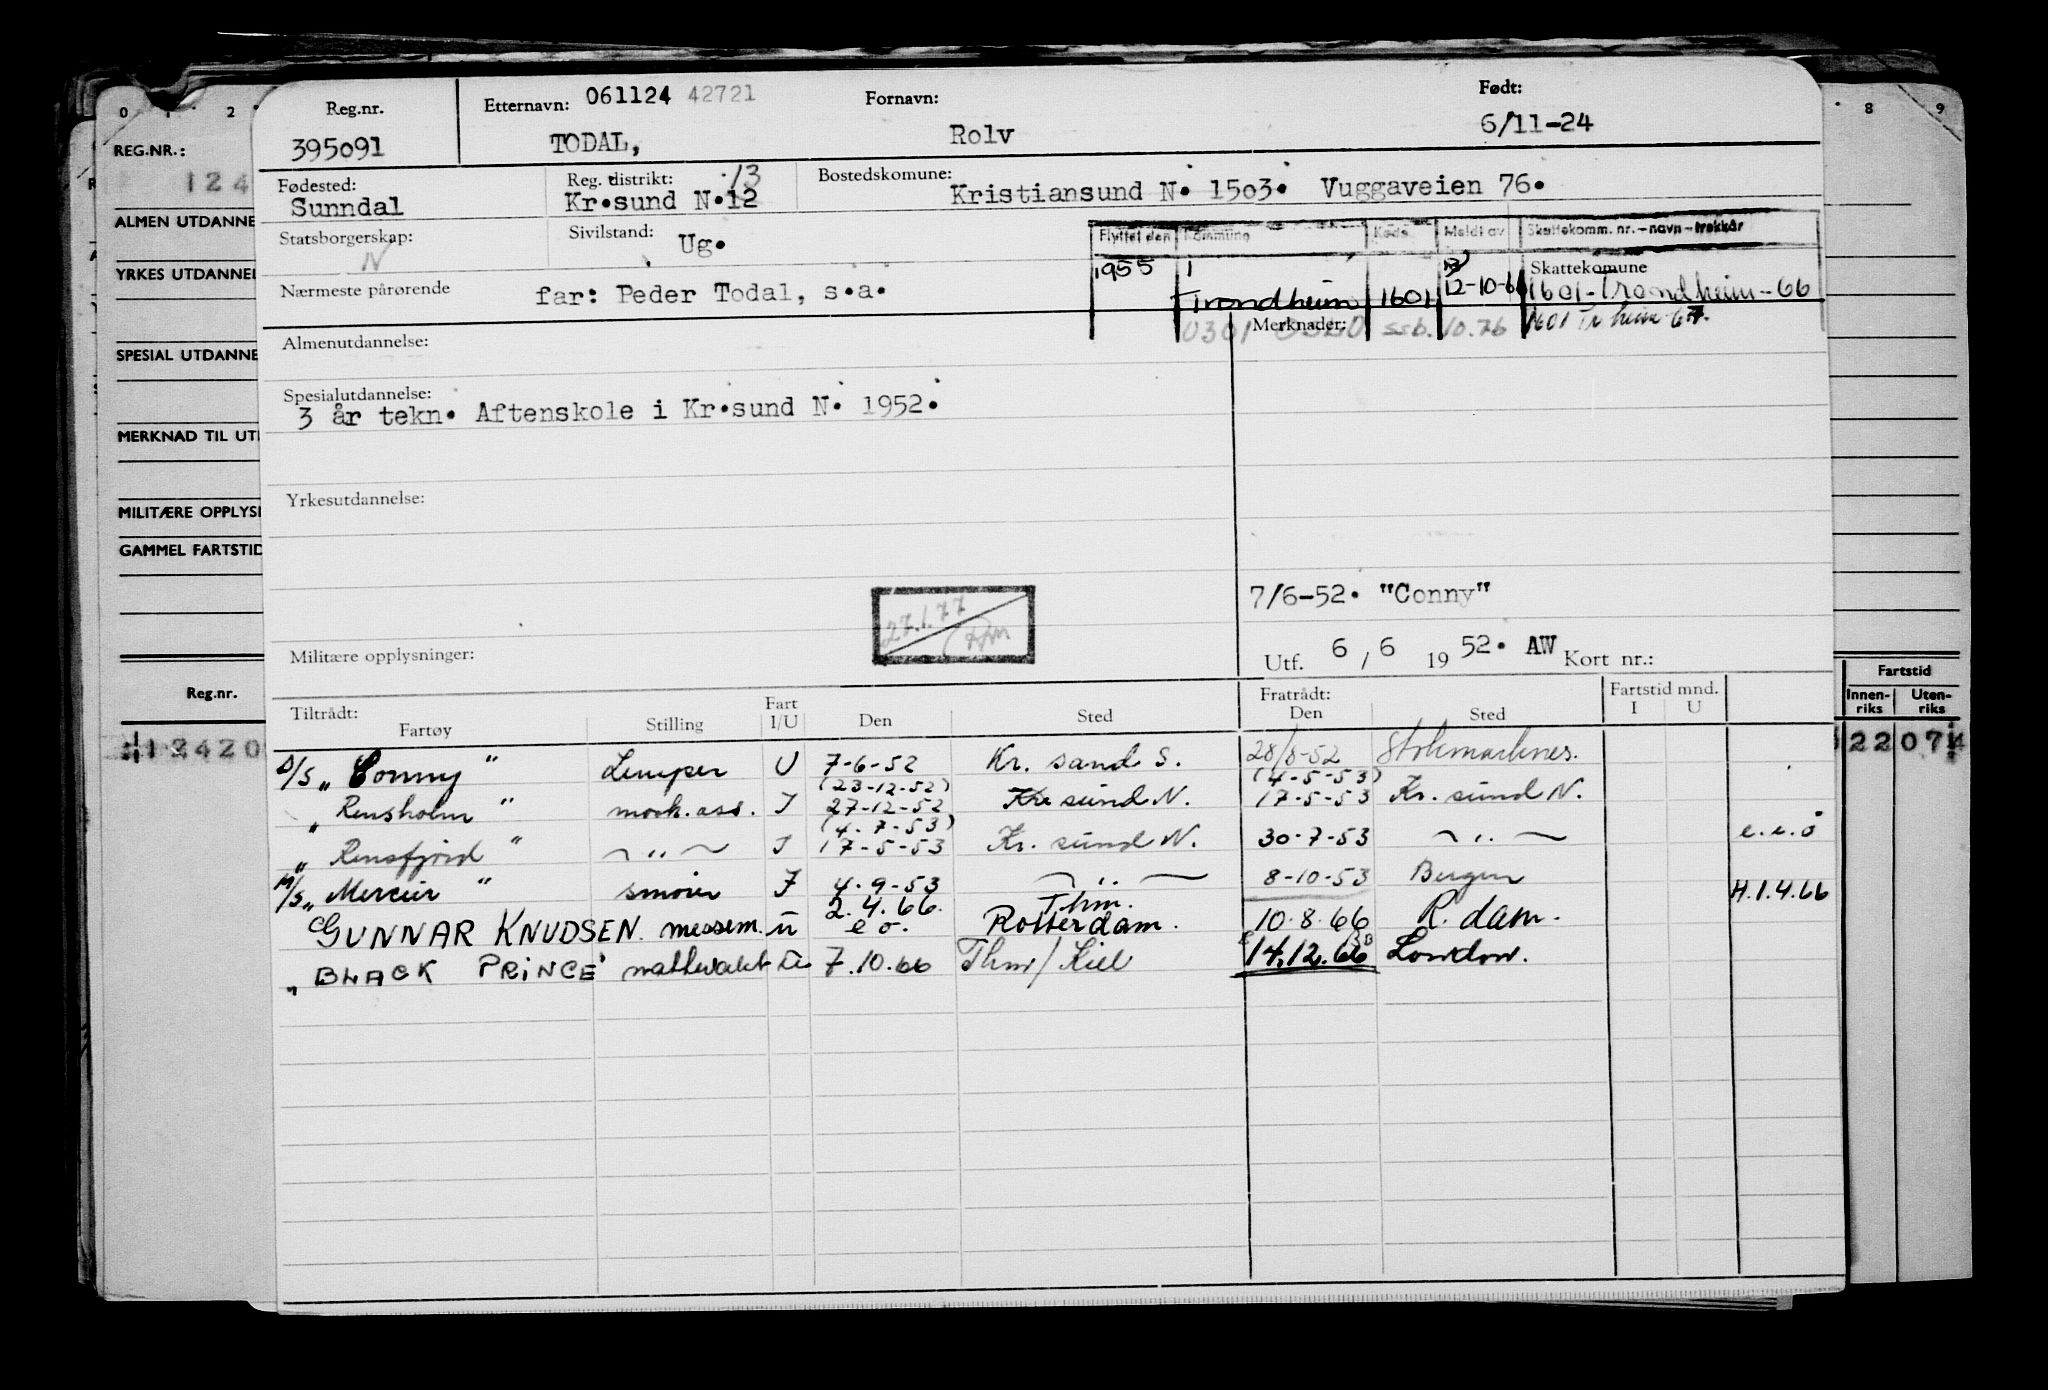 Reg.nr. Etternavn: 061124 42721 Fornavn: Født:
395091 TODAL, Rolv 6/11-24
Fødested: Reg. distrikt: 13 Bostedskommune:
Sunndal Kr.sund N.12 Kristiansund N. 1503. Vuggaveien 76.
Statsborgerskap: Sivilstand: Flyttet den Kommune Kode Meldt av Skattekomm. nr.-navn-trekkår
N Ug.
1955 Trondheim 1601 12-10-66 Skattekomune 1601-Trondheim-66
Nærmeste pårørende far: Peder Todal, s.a.
0301 OSLO ssb. 10.76 1601 Tr heim 67.
Almenutdannelse: Merknader:
Spesialutdannelse:
3 år tekn. Aftenskole i Kr.sund N. 1952.
Yrkesutdannelse:
27.1.77
7/6-52. "Conny"
Militære opplysninger: Utf. 6 / 6 19 52. AW Kort nr.:
Tiltrådt: Fartøy Stilling Fart I/U Den Sted Fratrådt: Den Sted Fartstid mnd. I U
D/S „ Conny " Lemper U 7-6-52 Kr. sand S. 28/8-52 Stokmarknes.
(23-12-52) (4-5-53)
„ Rensholm " mask.ass. I 27-12-52 Kr sund N. 17-5-53 Kr. sund N.
(4-7-53)
„ Rensfjord " — „ — I 17-5-53 Kr. sund N. 30-7-53 — „ — e.e.o
M/S „ Mercur " smører I 4-9-53 — „ — 8-10-53 Bergen
2.4.66. Thm. H.1.4.66
GUNNAR KNUDSEN. messem. u e o. Rotterdam. 10.8.66 R.dam.
„ BLACK PRINCE 7.10.66 Thm/Kiel 14.12.66 London.
0 1 2
REG.NR.:
124
ALMEN UTDANNE
YRKES UTDANNEL
SPESIAL UTDANNE
MERKNAD TIL UT
MILITÆRE OPPLYS
GAMMEL FARTSTID
Reg.nr.
12420
8 9
Fartstid
Innen-riks Uten-riks
22074